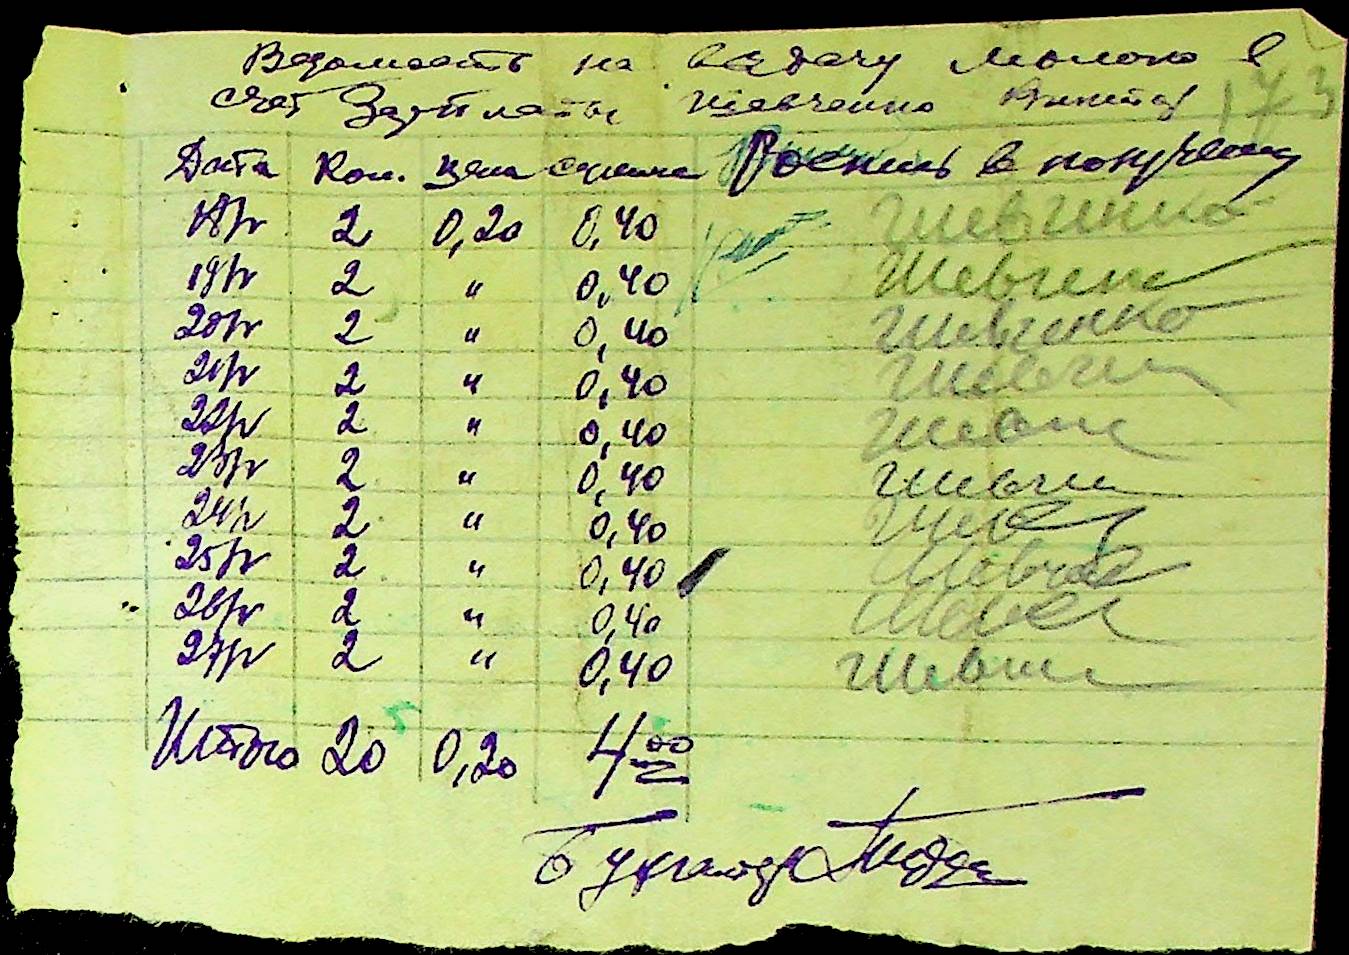 Ведомость на выдачу молока в 173
счет Зарплаты Шевченко
Дата Кол. цена сумма Роспись в получении
18/IV 2 0,20 0,40 Шевченко
19/IV 2 " 0,40 Шевченк
20/IV 2 " 0,40 Шевченко
21/IV 2 " 0,40 Шевчен
22/IV 2 " 0,40 Шевч
23/IV 2 " 0,40 Шевчен
24/IV 2 " 0,40
25/IV 2 " 0,40
26/IV 2 " 0,40
27/IV 2 " 0,40 Шевч
Итого 20 0,20 4.00
Бухгалтер